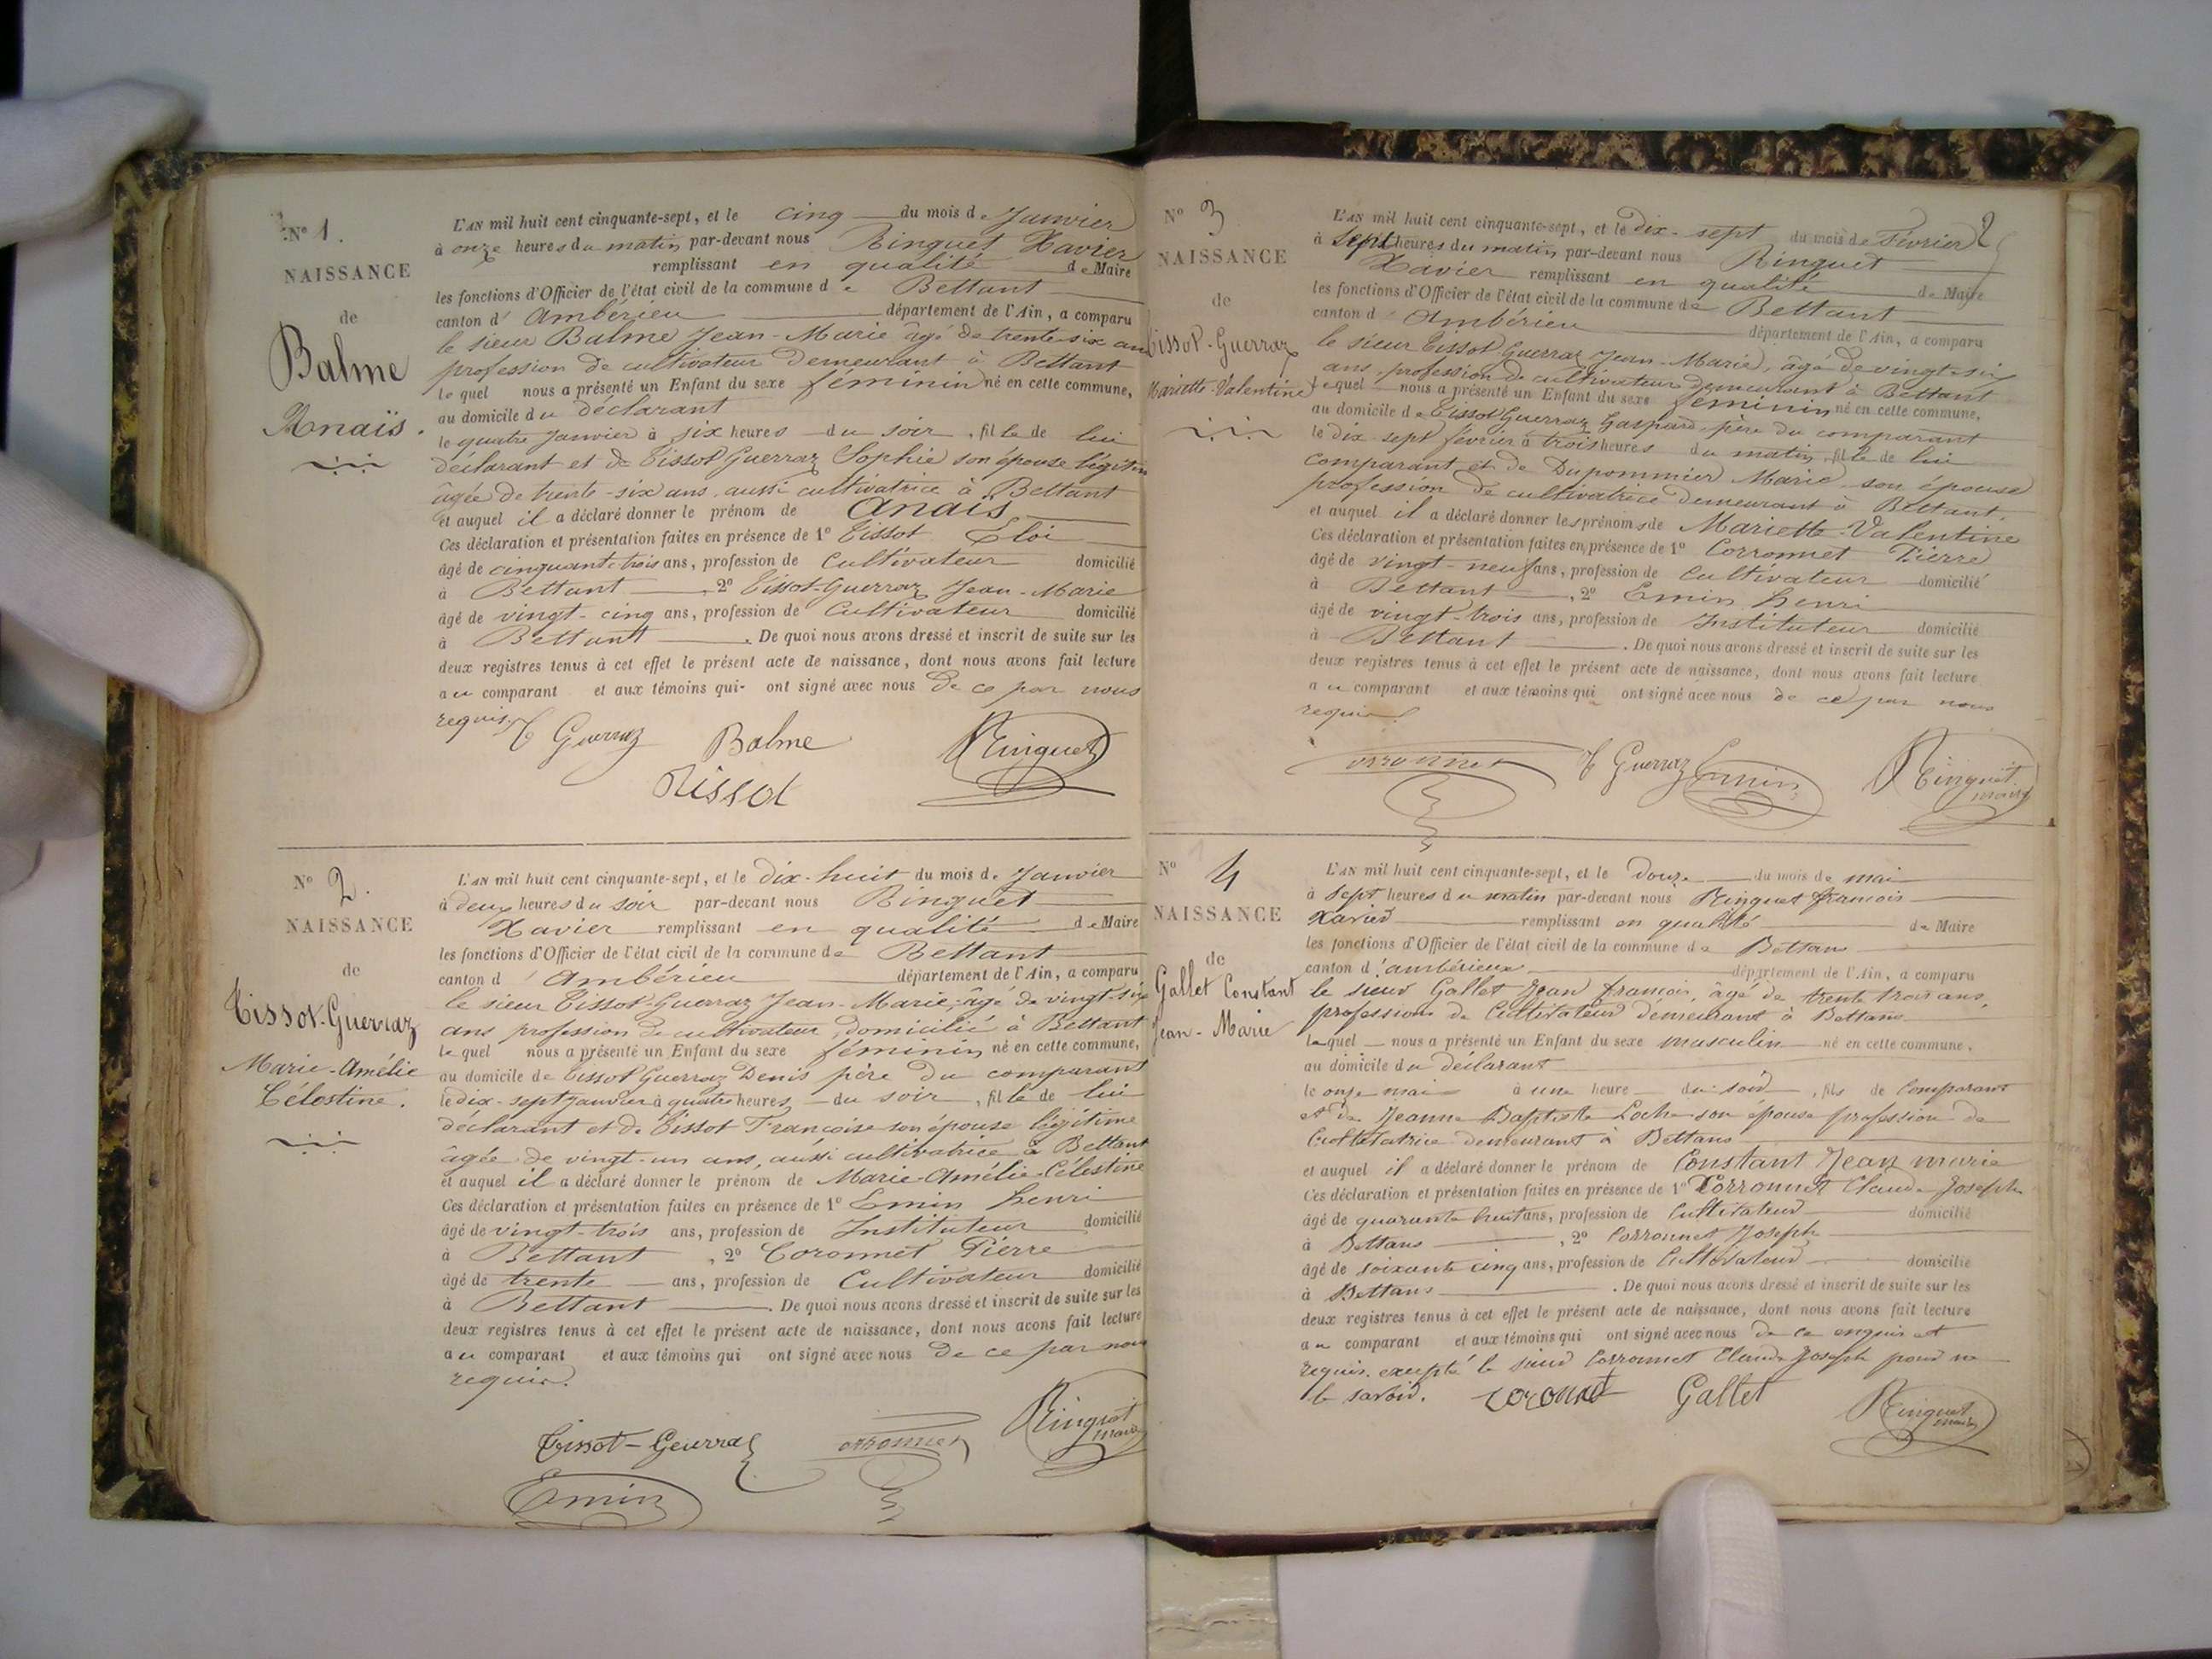 N° 1.
NAISSANCE
de
Balme
Anaïs.
L'AN mil huit cent cinquante-sept, et le cinq du mois de Janvier
à onze heures du matin par-devant nous Ringuet Xavier
remplissant en qualité de Maire
les fonctions d'Officier de l'état civil de la commune de Bettant
canton d'Ambérieu département de l'Ain, a comparu
le sieur Balme Jean-Marie âgé de trente-six ans
profession de cultivateur demeurant à Bettant
lequel nous a présenté un Enfant du sexe féminin né en cette commune,
au domicile du déclarant
le quatre Janvier à six heures du soir, fille de lui
déclarant et de Tissot Guerraz Sophie son épouse légitime
âgée de trente-six ans, aussi cultivatrice à Bettant
et auquel il a déclaré donner le prénom de Anaïs
Ces déclaration et présentation faites en présence de 1° Tissot Eloi
âgé de cinquante trois ans, profession de Cultivateur domicilié
à Bettant, 2° Tissot-Guerraz Jean-Marie
âgé de vingt-cinq ans, profession de Cultivateur domicilié
à Bettant. De quoi nous avons dressé et inscrit de suite sur les
deux registres tenus à cet effet le présent acte de naissance, dont nous avons fait lecture
au comparant et aux témoins qui ont signé avec nous de ce par nous
requis.
T Guerraz Balme Ringuet
Tissot
N° 2.
NAISSANCE
de
Tissot-Guerraz
Marie-Amélie
Célestine.
L'AN mil huit cent cinquante-sept, et le dix-huit du mois de Janvier
à deux heures du soir par-devant nous Ringuet
Xavier remplissant en qualité de Maire
les fonctions d'Officier de l'état civil de la commune de Bettant
canton d'Ambérieu département de l'Ain, a comparu
le sieur Tissot-Guerraz Jean-Marie, âgé de vingt-six
ans profession de cultivateur, domicilié à Bettant
lequel nous a présenté un Enfant du sexe féminin né en cette commune,
au domicile de Tissot Guerraz Denis père du comparant
le dix-sept janvier à quatre heures du soir, fille de lui
déclarant et de Tissot Françoise son épouse légitime
âgée de vingt-un ans, aussi cultivatrice à Bettant
et auquel il a déclaré donner le prénom de Marie-Amélie-Célestine
Ces déclaration et présentation faites en présence de 1° Emin henri
âgé de vingt-trois ans, profession de Instituteur domicilié
à Bettant, 2° Coronnet Pierre
âgé de trente ans, profession de Cultivateur domicilié
à Bettant. De quoi nous avons dressé et inscrit de suite sur les
deux registres tenus à cet effet le présent acte de naissance, dont nous avons fait lecture
au comparant et aux témoins qui ont signé avec nous de ce par nous
requis.
Tissot-Geurraz orronnet Ringuet maire
Emin
2
N° 3
NAISSANCE
de
Tissot-Guerraz
Mariette-Valentine
L'AN mil huit cent cinquante-sept, et le dix-sept du mois de Février
à Sept heures du matin par-devant nous Ringuet
Xavier remplissant en qualité de Maire
les fonctions d'Officier de l'état civil de la commune de Bettant
canton d'Ambérieu département de l'Ain, a comparu
le sieur Tissot Guerraz Jean-Marie, âgé de vingt-six
ans, profession de cultivateur demeurant à Bettant
lequel nous a présenté un Enfant du sexe féminin né en cette commune,
au domicile de Tissot Guerraz Gaspard père du comparant
le dix-sept février à trois heures du matin, fille de lui
comparant et de Dupommier Marie son épouse
profession de cultivatrice demeurant à Bettant.
et auquel il a déclaré donner les prénoms de Mariette-Valentine
Ces déclaration et présentation faites en présence de 1° Corronnet Pierre
âgé de vingt-neuf ans, profession de Cultivateur domicilié
à Bettant, 2° Emin henri
âgé de vingt-trois ans, profession de Instituteur domicilié
à Bettant. De quoi nous avons dressé et inscrit de suite sur les
deux registres tenus à cet effet le présent acte de naissance, dont nous avons fait lecture
au comparant et aux témoins qui ont signé avec nous de ce par nous
requis
orronnet T Guerraz Emin Ringuet maire
N° 4
NAISSANCE
de
Gallet Constant
Jean-Marie
L'AN mil huit cent cinquante-sept, et le douze du mois de mai
à sept heures du matin par-devant nous Ringuet françois
Xavier remplissant en qualité de Maire
les fonctions d'Officier de l'état civil de la commune de Bettans
canton d'ambérieux département de l'Ain, a comparu
le sieur Gallet Jean françois, âgé de trente trois ans,
profession de Cultivateur demeurant à Bettans
lequel nous a présenté un Enfant du sexe masculin né en cette commune,
au domicile du déclarant
le onze mai à une heure du soir, fils de Comparant
et de Jeanne Baptiste Loche son épouse profession de
Cultivatrice demeurant à Bettans
et auquel il a déclaré donner le prénom de Constant Jean marie
Ces déclaration et présentation faites en présence de 1° Corronnet Claude Joseph
âgé de quarante huit ans, profession de Cultivateur domicilié
à Bettans, 2° Corronnet Joseph
âgé de soixante cinq ans, profession de Cultivateur domicilié
à Bettans. De quoi nous avons dressé et inscrit de suite sur les
deux registres tenus à cet effet le présent acte de naissance, dont nous avons fait lecture
au comparant et aux témoins qui ont signé avec nous de ce enquis et
requis. excepté le sieur Corronnet Claude Joseph pour ne
le savoir. coronnet Gallet Ringuet maire